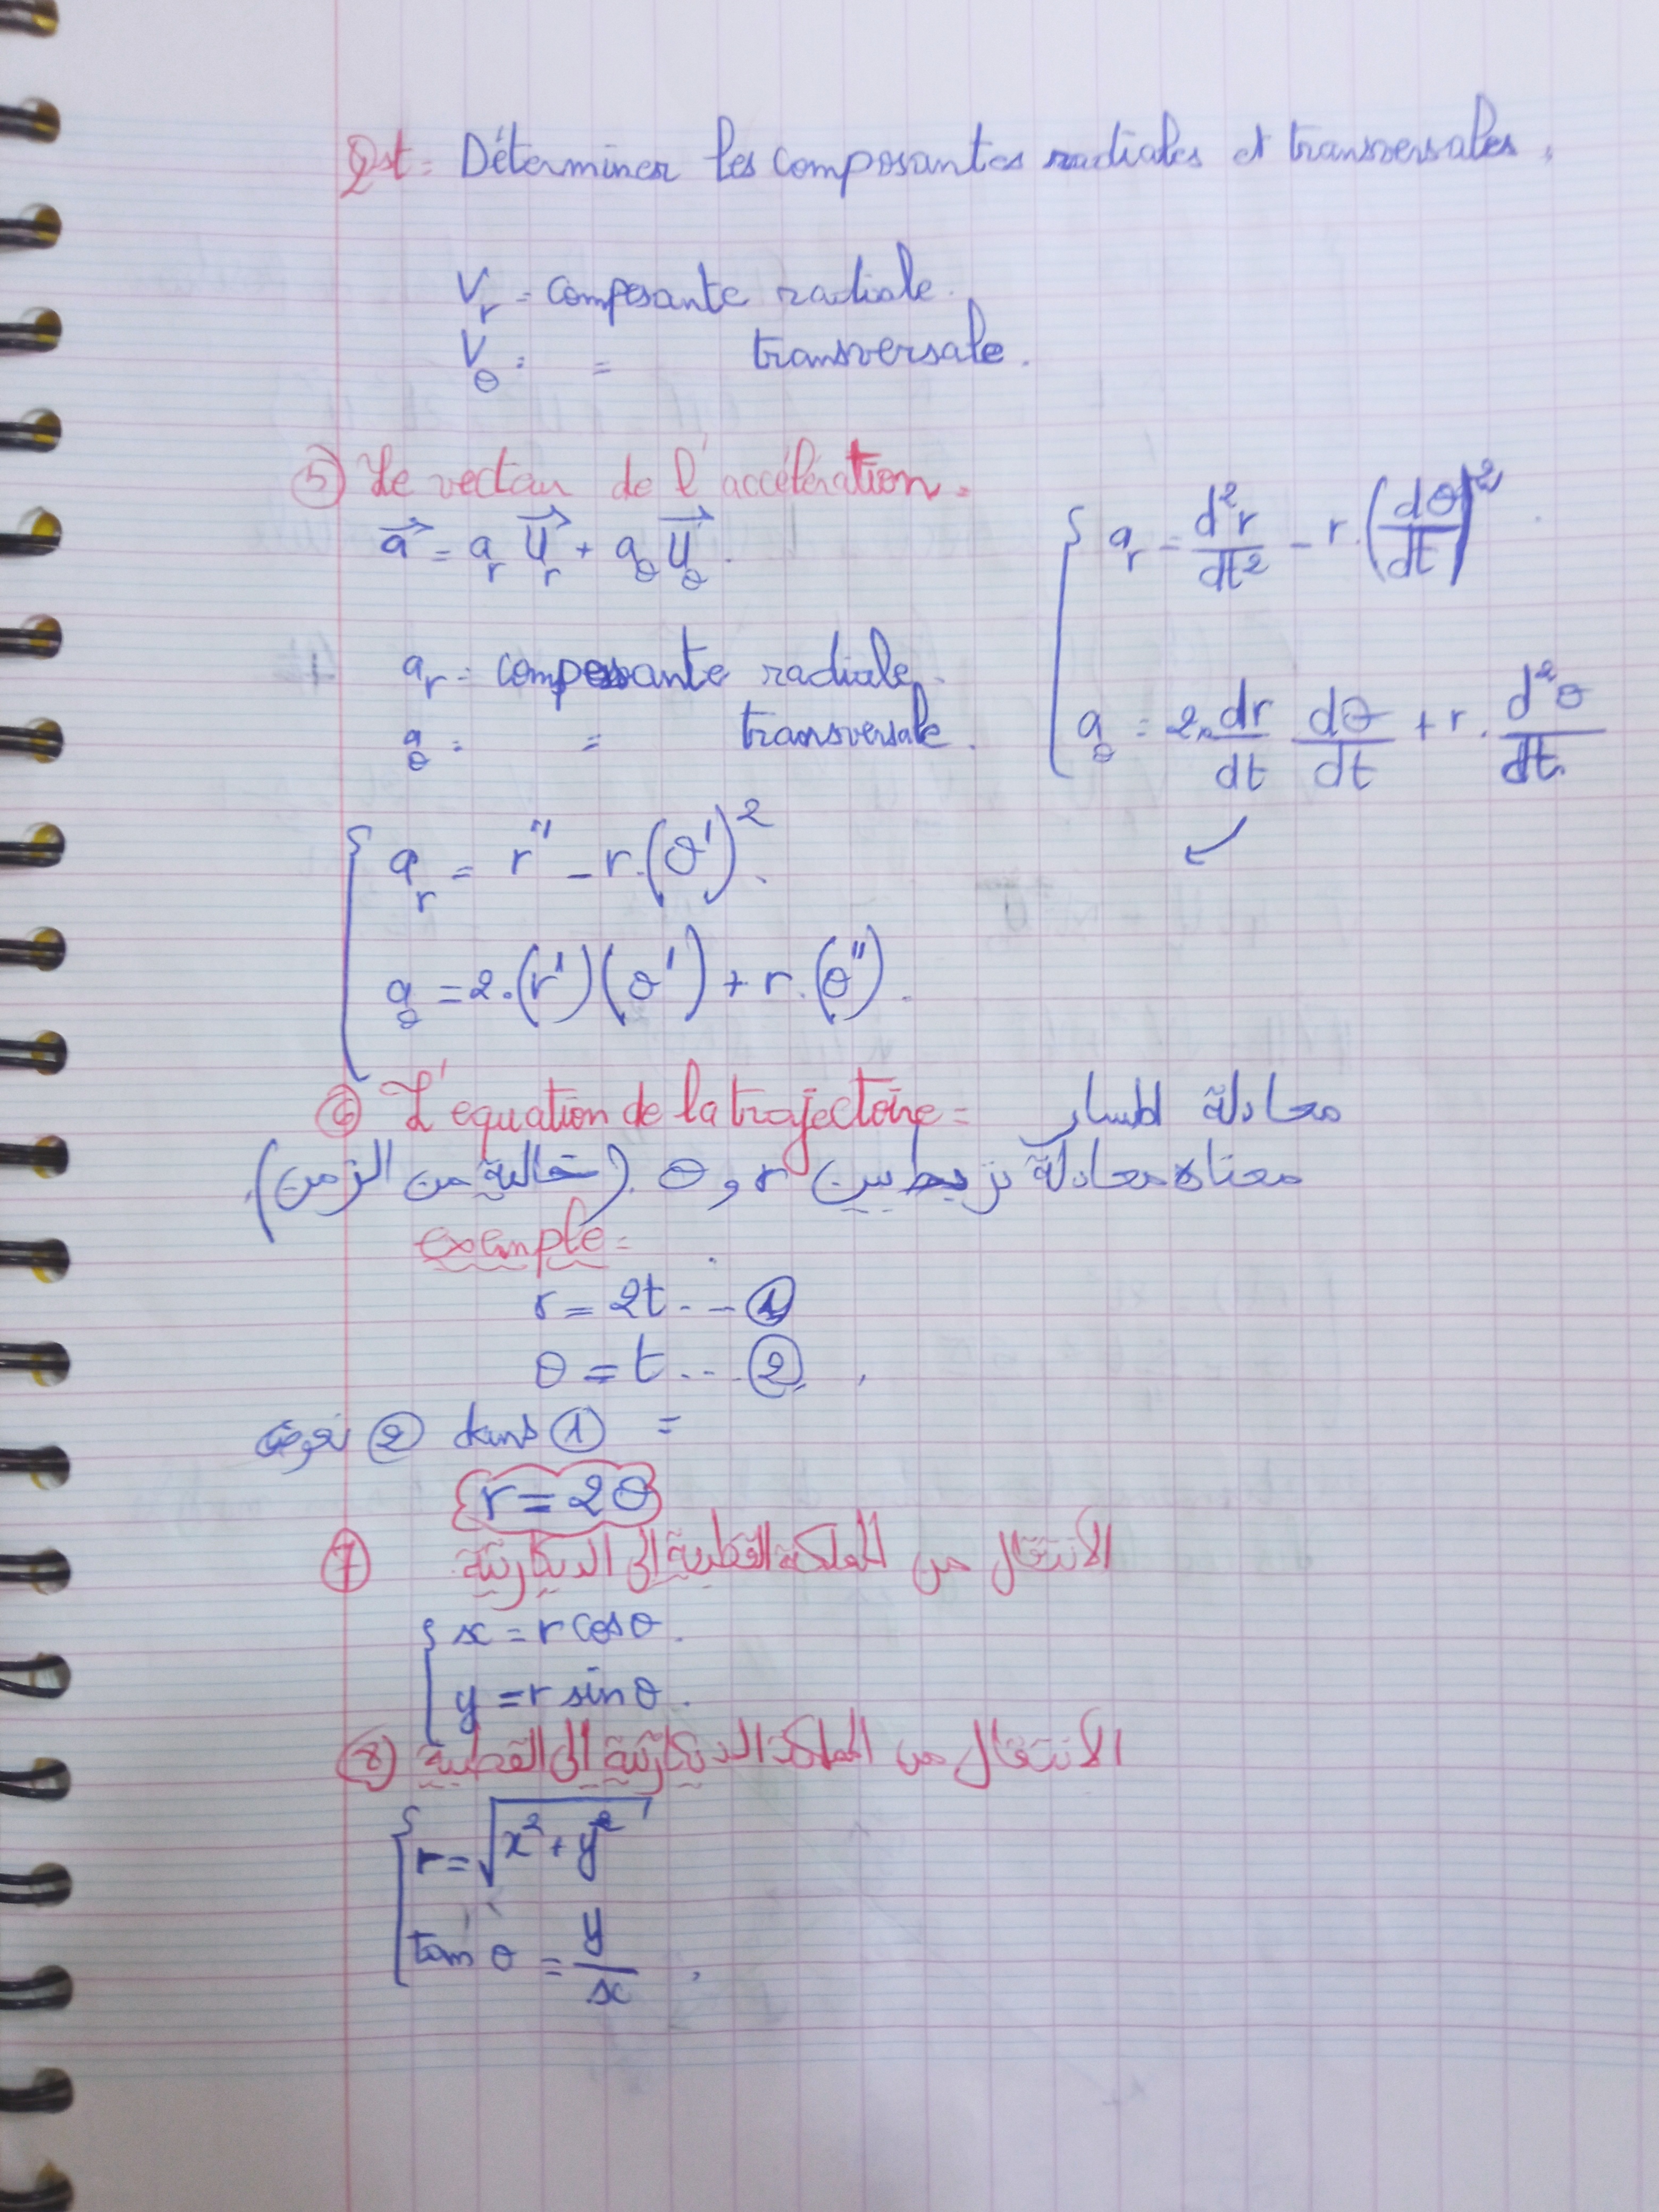 Qst: Déterminer les composantes radiales et transversales.
Vr = composante radiale.
Vθ : = transversale.
⑤ Le vecteur de l'accélération.
a⃗ = ar U⃗r + aθ U⃗θ.
ar = d²r/dt² - r.(dθ/dt)²
ar = composante radiale.
aθ : = transversale.
aθ = 2. dr/dt dθ/dt + r. d²θ/dt
ar = r'' - r.(θ')².
aθ = 2.(r')(θ') + r.(θ'').
⑥ L'équation de la trajectoire = معادلة المسار
معناه معادلة تربط بين r و θ. (خالية من الزمن).
exemple =
r = 2t - - ①
θ = t - - ②
نعوض ② dans ① =
r = 2θ
⑦ الانتقال من الجملة القطبية إلى الديكارتية
x = r cosθ.
y = r sinθ.
⑧ الانتقال من الجملة الديكارتية إلى القطبية
r = √x² + y²
tan θ = y/x